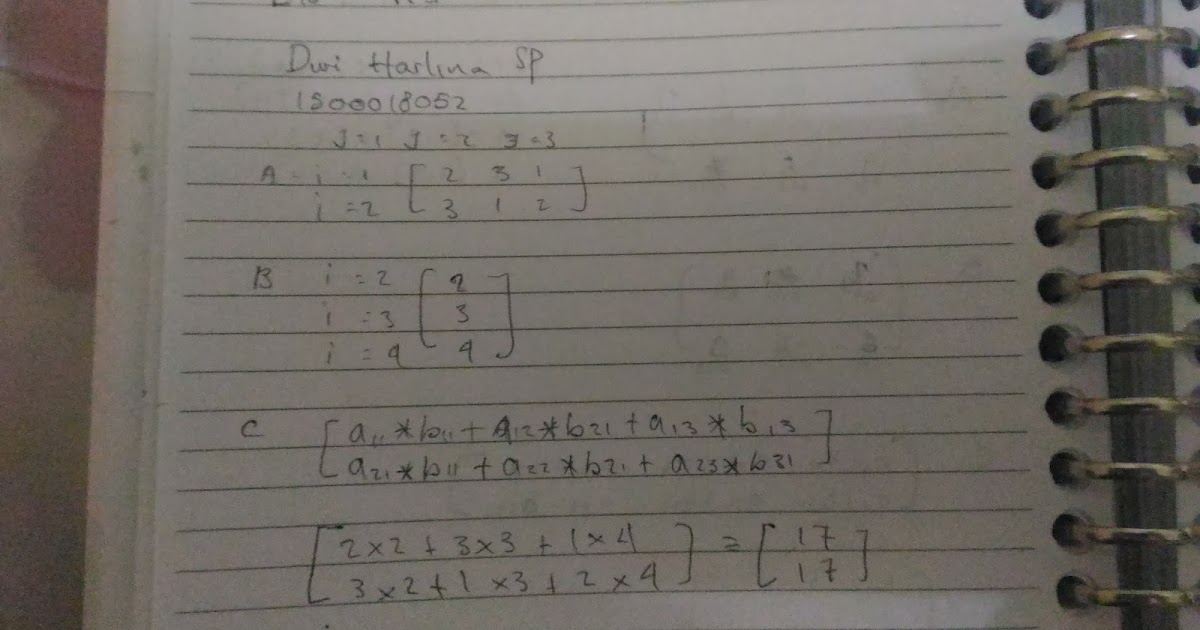 Dwi Harlina SP
1800018052
J=1 J=2 J=3
A = i =1 [ 2 3 1 ]
i =2 [ 3 1 2 ]
B i = 2 [ 2 ]
i = 3 [ 3 ]
i = 4 [ 4 ]
C [ a11 * b11 + a12 * b21 + a13 * b13 ]
[ a21 * b11 + a22 * b21 + a23 * b31 ]
[ 2 x 2 + 3 x 3 + 1 x 4 ] = [ 17 ]
[ 3 x 2 + 1 x 3 + 2 x 4 ] [ 17 ]